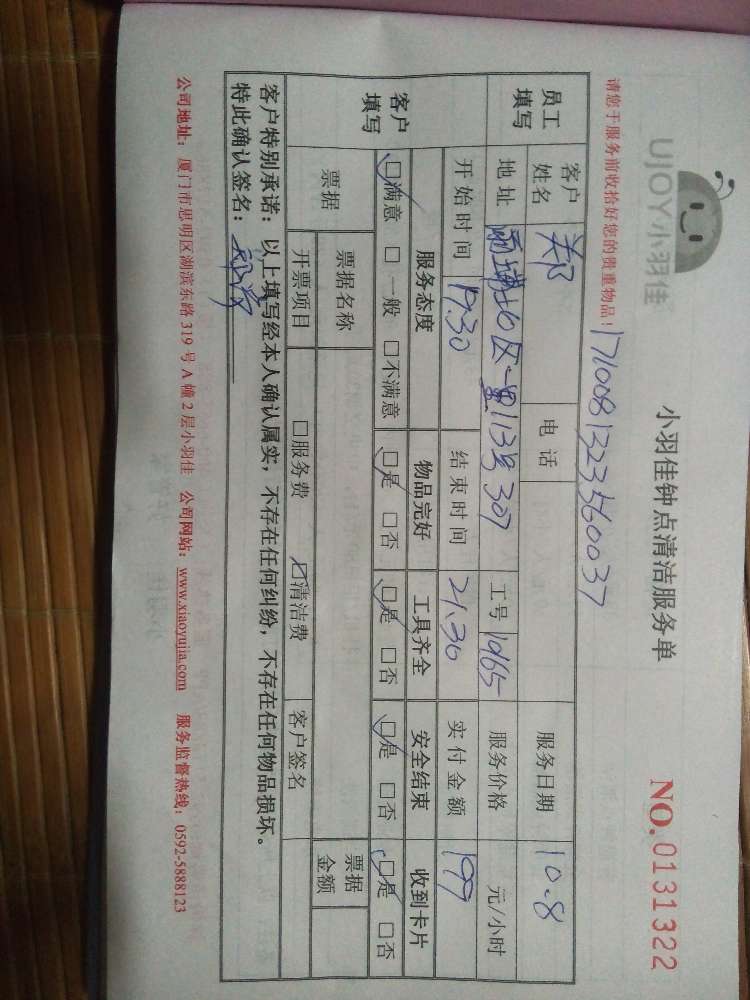 UJOY小羽佳
小羽佳钟点清洁服务单
NO.0131322
请您于服务前收拾好您的贵重物品!
171008132356 0037
员工填写 客户姓名 电话 服务日期 10.8
地址 一里113号307 工号 1065 服务价格 元/小时
开始时间 17.30 结束时间 21.30 实付金额 199
客户填写 服务态度 物品完好 工具齐全 安全结束 收到卡片
☑满意 □一般 □不满意 ☑是 □否 ☑是 □否 ☑是 □否 ☑是 □否
票据 票据名称 票据金额
开票项目 □服务费 ☑清洁费 客户签名
客户特别承诺:以上填写经本人确认属实,不存在任何纠纷,不存在任何物品损坏。
特此确认签名:
公司地址:厦门市思明区湖滨东路 319 号 A 幢 2 层小羽佳 公司网站:www.xiaoyujia.com 服务监督热线:0592-5888123